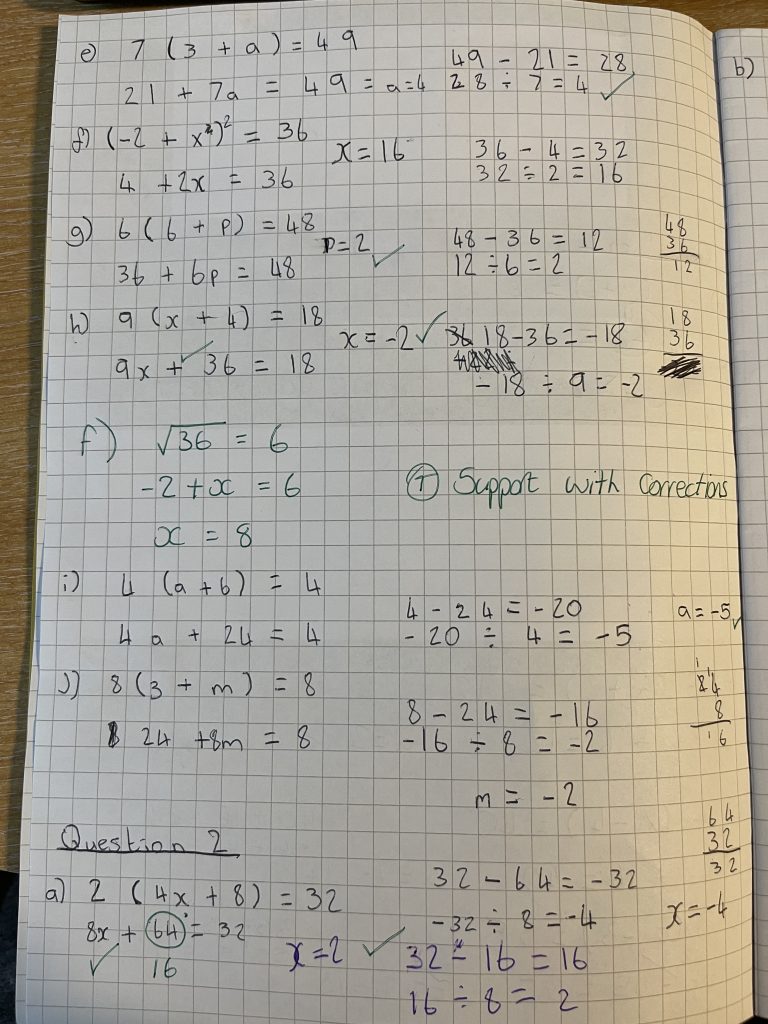 e) 7 (3 + a) = 49 49 - 21 = 28
21 + 7a = 49 = a=4 28 ÷ 7 = 4 ✓
f) (-2 + x)² = 36 x = 16 36 - 4 = 32
4 + 2x = 36 32 ÷ 2 = 16
g) 6 (6 + p) = 48 p=2 ✓ 48 - 36 = 12 48
36 + 6p = 48 12 ÷ 6 = 2 36
12
h) 9 (x + 4) = 18 x = -2 ✓ 36 18 - 36 = -18 18
9x + 36 = 18 ✓ 36
- 18 ÷ 9 = -2
f) √36 = 6
-2 + x = 6 T Support with Corrections
x = 8
i) 4 (a + 6) = 4 4 - 24 = -20 a = -5 ✓
4a + 24 = 4 - 20 ÷ 4 = -5
J) 8 (3 + m) = 8 8 - 24 = -16 24
24 + 8m = 8 -16 ÷ 8 = -2 8
16
m = -2
Question 2 64
32
32
a) 2 (4x + 8) = 32 32 - 64 = -32
8x + 64 = 32 -32 ÷ 8 = -4 x = -4
✓ 16 x = 2 ✓ 32 - 16 = 16
16 ÷ 8 = 2
b)